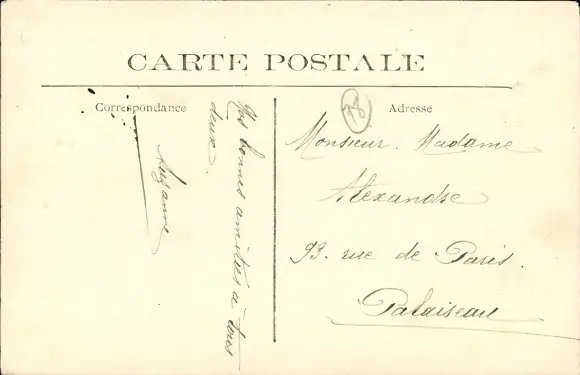 CARTE POSTALE
Correspondance
Adresse
Mes bonnes amitiés à tous
deux.
Suzanne
Monsieur. Madame
Alexandre
93. rue de Paris.
Palaiseau